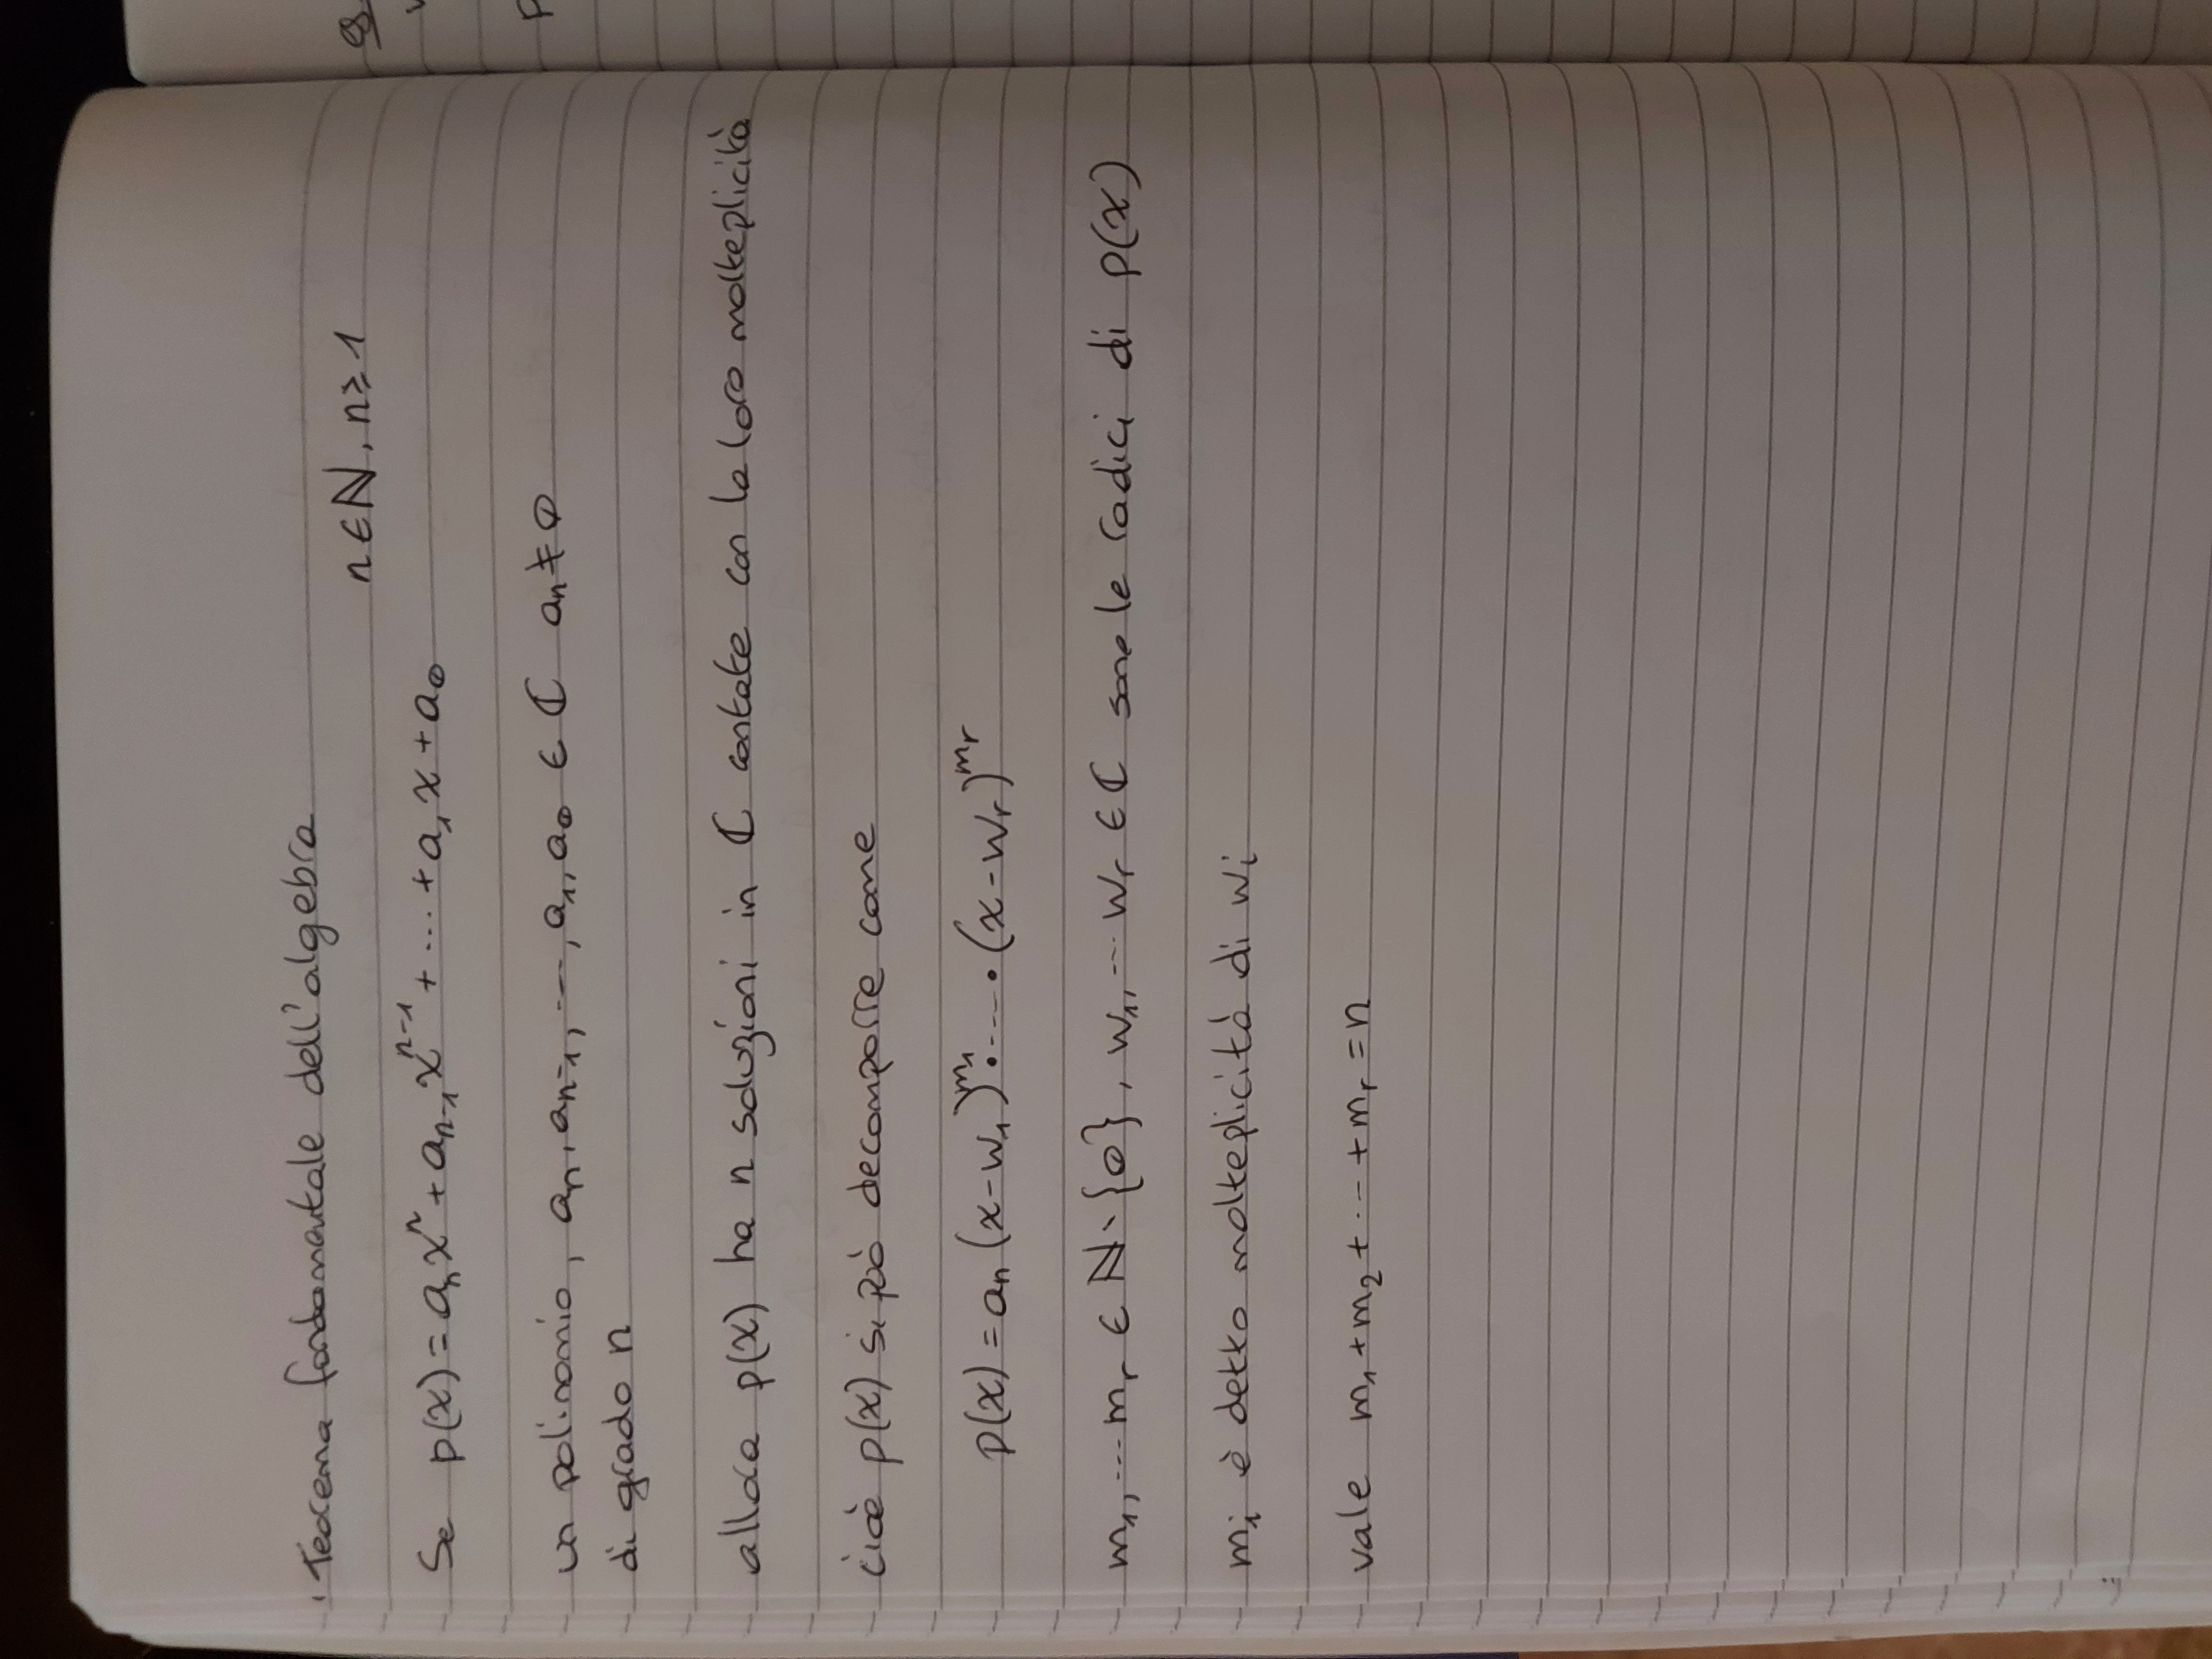 Teorema fondamentale dell'algebra
n ∈ ℕ, n ≥ 1
Se p(x) = aₙxⁿ + aₙ₋₁xⁿ⁻¹ + ... + a₁x + a₀
un polinomio, aₙ, aₙ₋₁, ..., a₁, a₀ ∈ ℂ aₙ ≠ 0
di grado n
allora p(x) ha n soluzioni in ℂ contate con la loro molteplicità
cioè p(x) si può decomporre come
p(x) = aₙ (x-w₁)^m₁ · ... · (x-wᵣ)^mᵣ
m₁, ... mᵣ ∈ ℕ \ {0}, w₁, ... wᵣ ∈ ℂ sono le radici di p(x)
mᵢ è detto molteplicità di wᵢ
vale m₁ + m₂ + ... + mᵣ = n
es